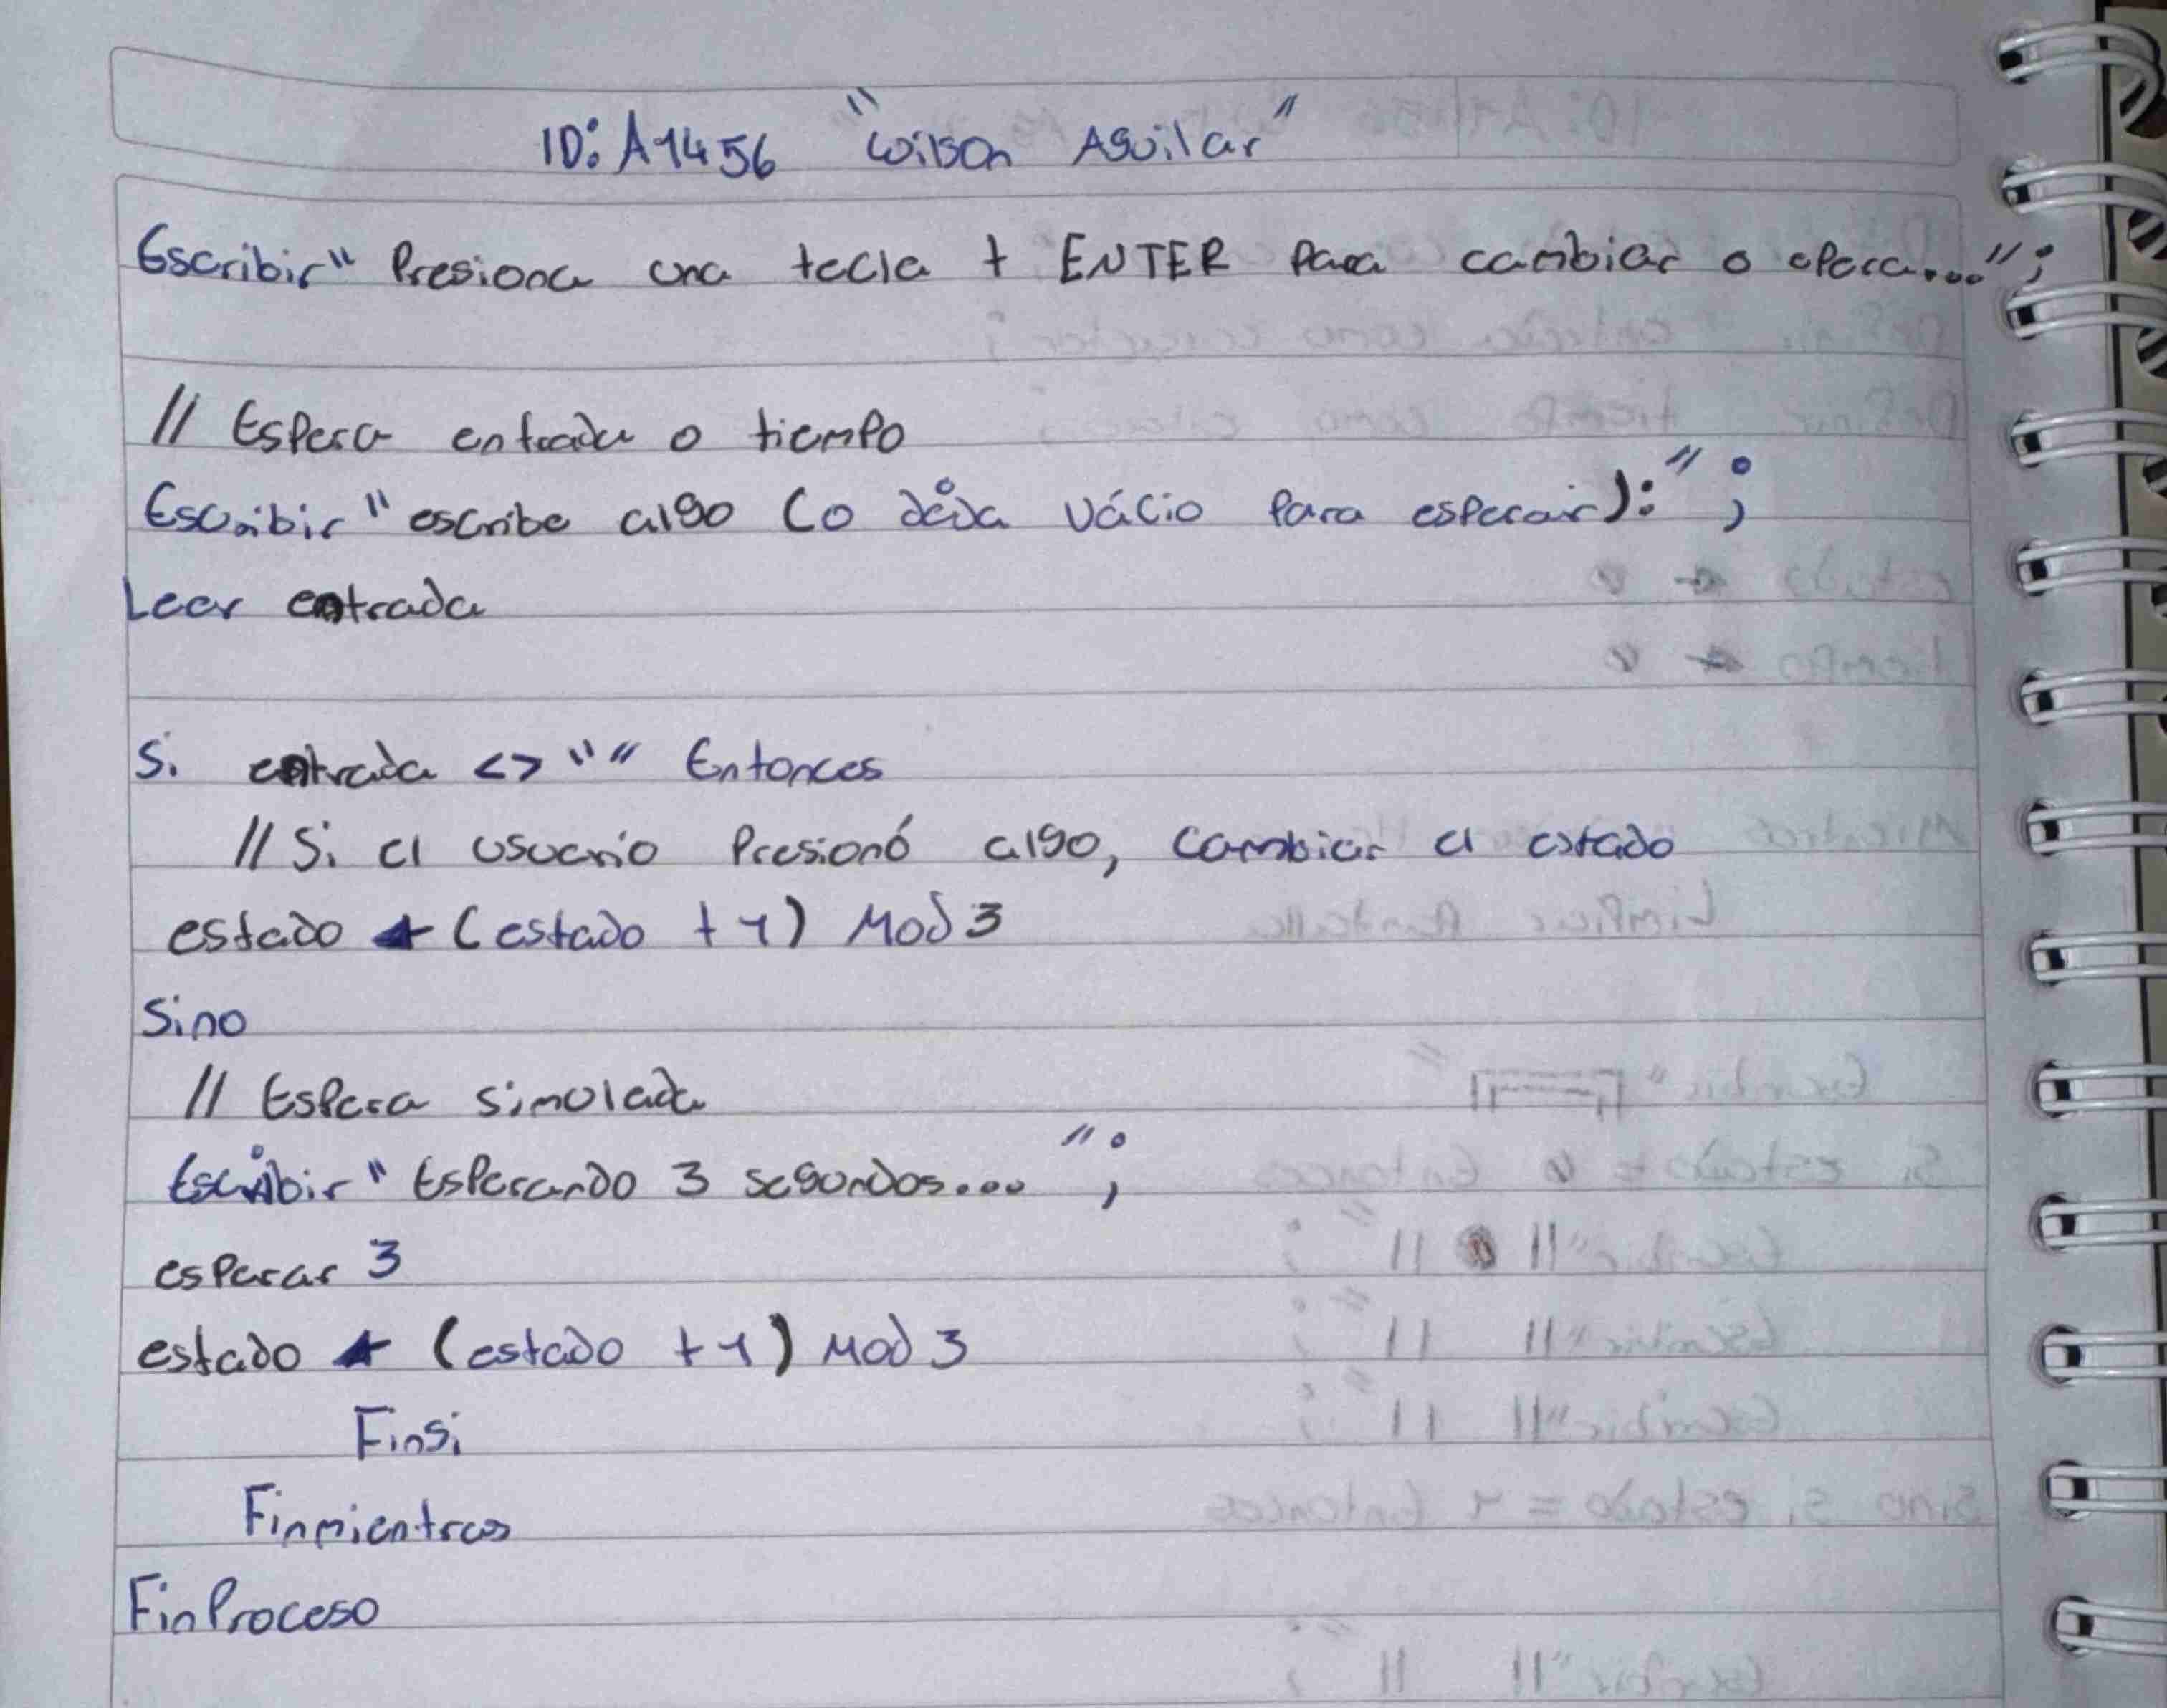 ID: A1456 "Wilson Aguilar"
Escribir" Presiona una tecla + ENTER Para cambiar o opera...";
// Espera entrada o tiempo
Escribir" escribe algo (o deja vácio Para esperar):";
Leer entrada
Si entrada <> "" Entonces
// Si el usuario Presionó algo, cambiar el estado
estado ← (estado + 1) Mod 3
Sino
// Espera simulada
Escribir" Esperando 3 segundos... ";
esperar 3
estado ← (estado + 1) Mod 3
FinSi
Finmientras
FinProceso